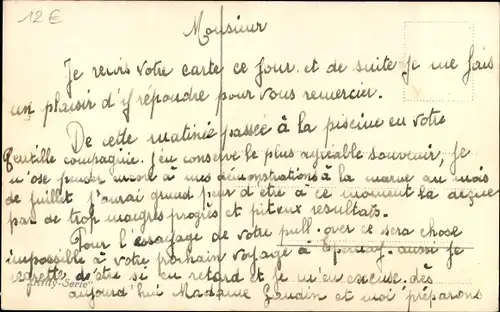 12 €
Monsieur
Je reçois votre carte ce jour et de suite je me fais
un plaisir d'y répondre pour vous remercier.
De cette matinée passée à la piscine en votre
gentille compagnie. J'en conserve le plus agréable souvenir, je
n'ose penser encore à mes démonstrations à la marne au mois
de juillet j'aurai grand peur d'être à ce moment là déçue
par de trop maigres progrès et piteux resultats.
Pour l'essayage de votre pull-over ce sera chose
impossible à votre prochain voyage à Epernay. aussi je
regrette d'être si en retard et je m'en excuse. dès
"Amity-Serie"
aujourd'hui Madame Gaudin et moi préparons